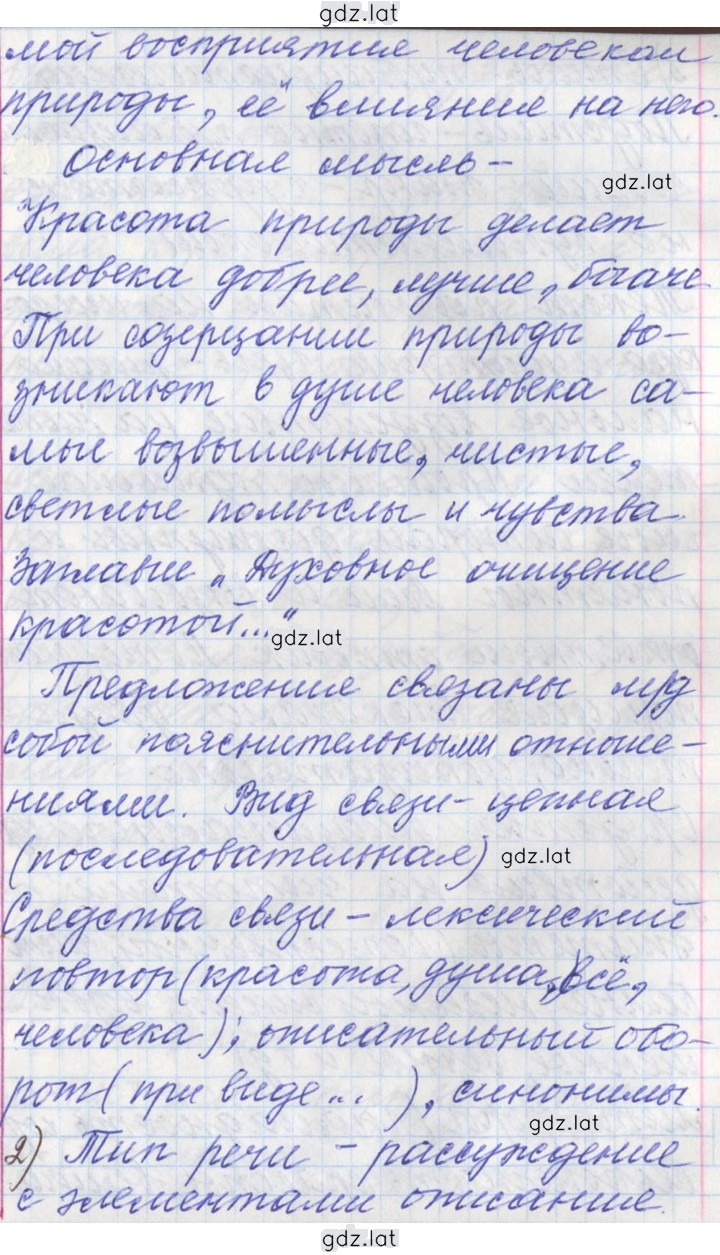 gdz.lat
мой восприятие человеком
природы, её влияние на него.
Основная мысль –
gdz.lat
Красота природы делает
человека добрее, лучше, богаче.
При созерцании природы во-
зникают в душе человека са-
мые возвышенные, чистые,
светлые помыслы и чувства.
Заглавие „Духовное очищение
красотой..."
gdz.lat
Предложения связаны м/д
собой пояснительными отноше-
ниями. Вид связи – цепная
(последовательная)
gdz.lat
Средства связи – лексический
повтор (красота, душа, всё,
человека); описательный обо-
рот (при виде ... ), синонимы.
gdz.lat
2) Тип речи – рассуждение
с элементами описание.
gdz.lat